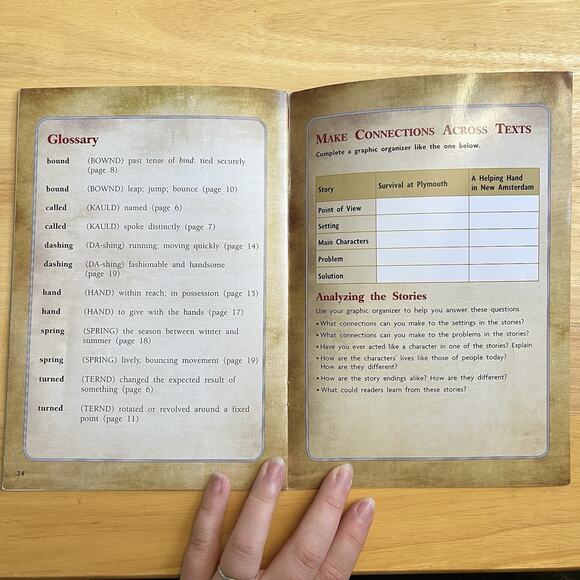 Glossary
bound (BOWND) past tense of bind: tied securely
(page 8)
bound (BOWND) leap; jump; bounce (page 10)
called (KAULD) named (page 6)
called (KAULD) spoke distinctly (page 7)
dashing (DA-shing) running; moving quickly (page 14)
dashing (DA-shing) fashionable and handsome
(page 19)
hand (HAND) within reach; in possession (page 15)
hand (HAND) to give with the hands (page 17)
spring (SPRING) the season between winter and
summer (page 18)
spring (SPRING) lively, bouncing movement (page 19)
turned (TERND) changed the expected result of
something (page 6)
turned (TERND) rotated or revolved around a fixed
point (page 11)
24
MAKE CONNECTIONS ACROSS TEXTS
Complete a graphic organizer like the one below.
Story Survival at Plymouth A Helping Hand
in New Amsterdam
Point of View
Setting
Main Characters
Problem
Solution
Analyzing the Stories
Use your graphic organizer to help you answer these questions.
• What connections can you make to the settings in the stories?
• What connections can you make to the problems in the stories?
• Have you ever acted like a character in one of the stories? Explain.
• How are the characters' lives like those of people today?
How are they different?
• How are the story endings alike? How are they different?
• What could readers learn from these stories?